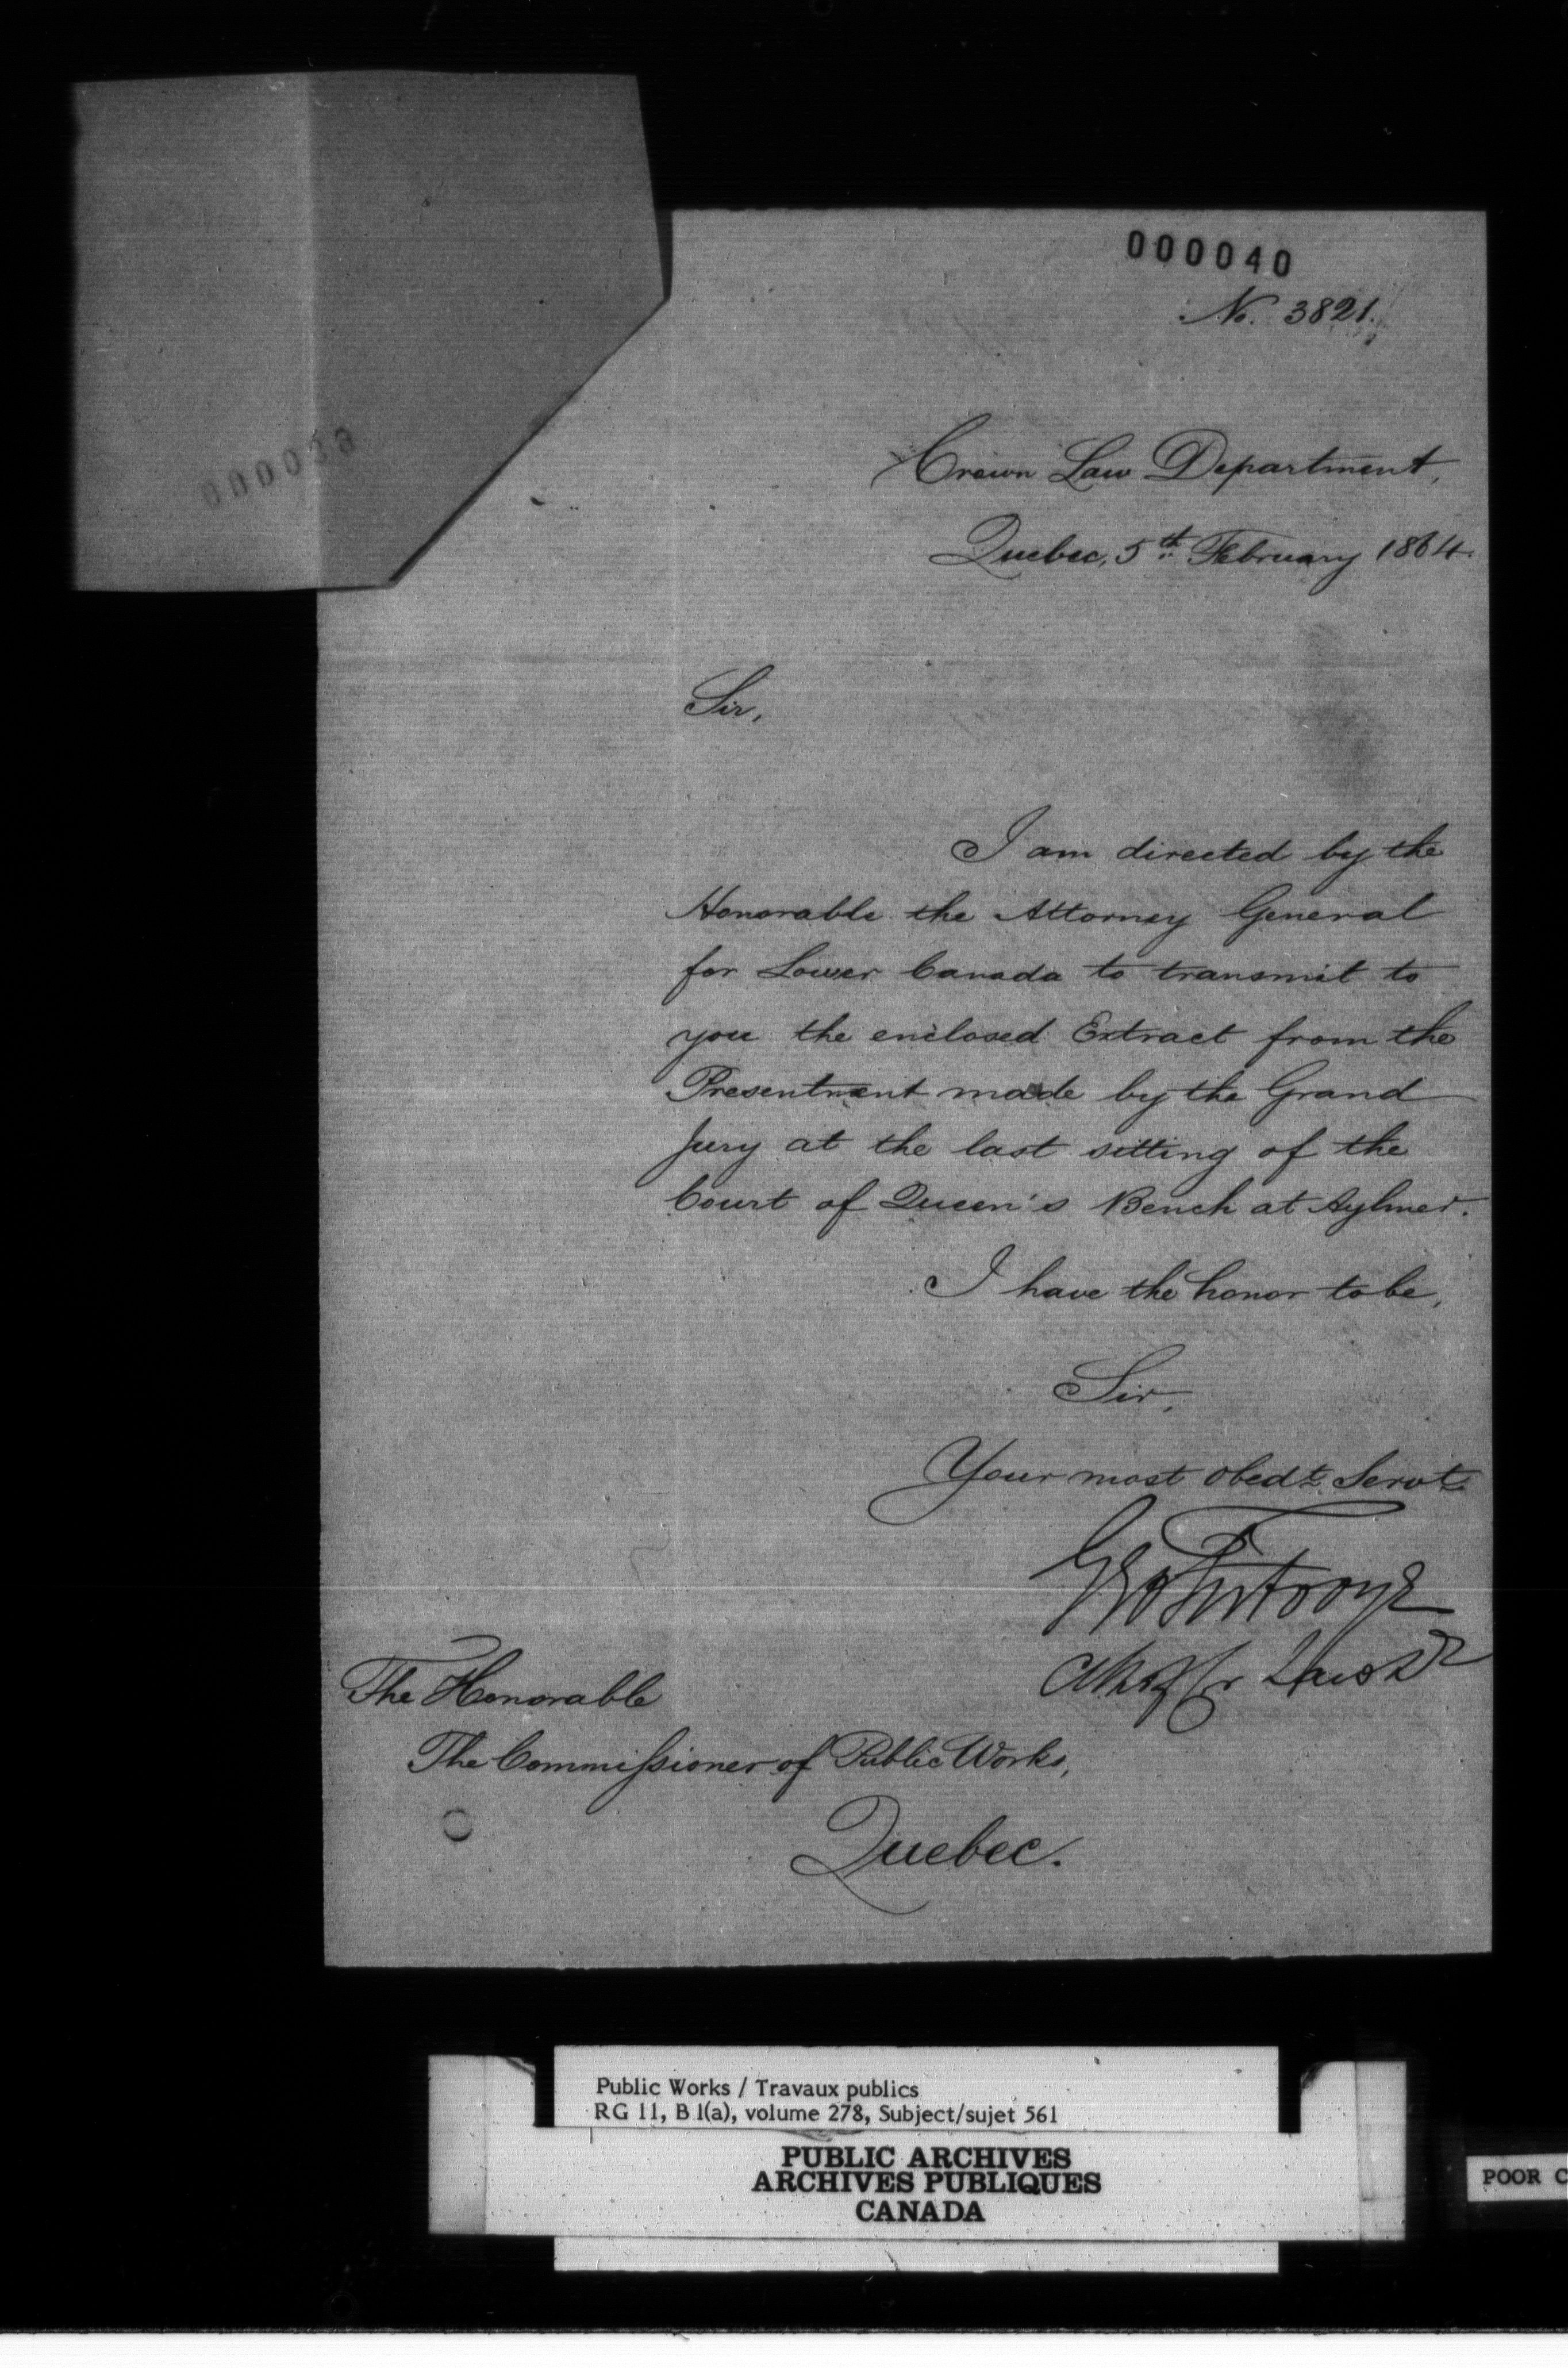 000040
No. 3821.
Crown Law Department,
Quebec, 5th February 1864.
Sir,
I am directed by the
Honorable the Attorney General
for Lower Canada to transmit to
you the enclosed Extract from the
Presentment made by the Grand
Jury at the last sitting of the
Court of Queen's Bench at Aylmer.
I have the honor to be,
Sir,
Your most obedt Servt
The Honorable
The Commissioner of Public Works,
Quebec.
Public Works / Travaux publics
RG 11, B 1(a), volume 278, Subject/sujet 561
PUBLIC ARCHIVES
ARCHIVES PUBLIQUES
CANADA
POOR C